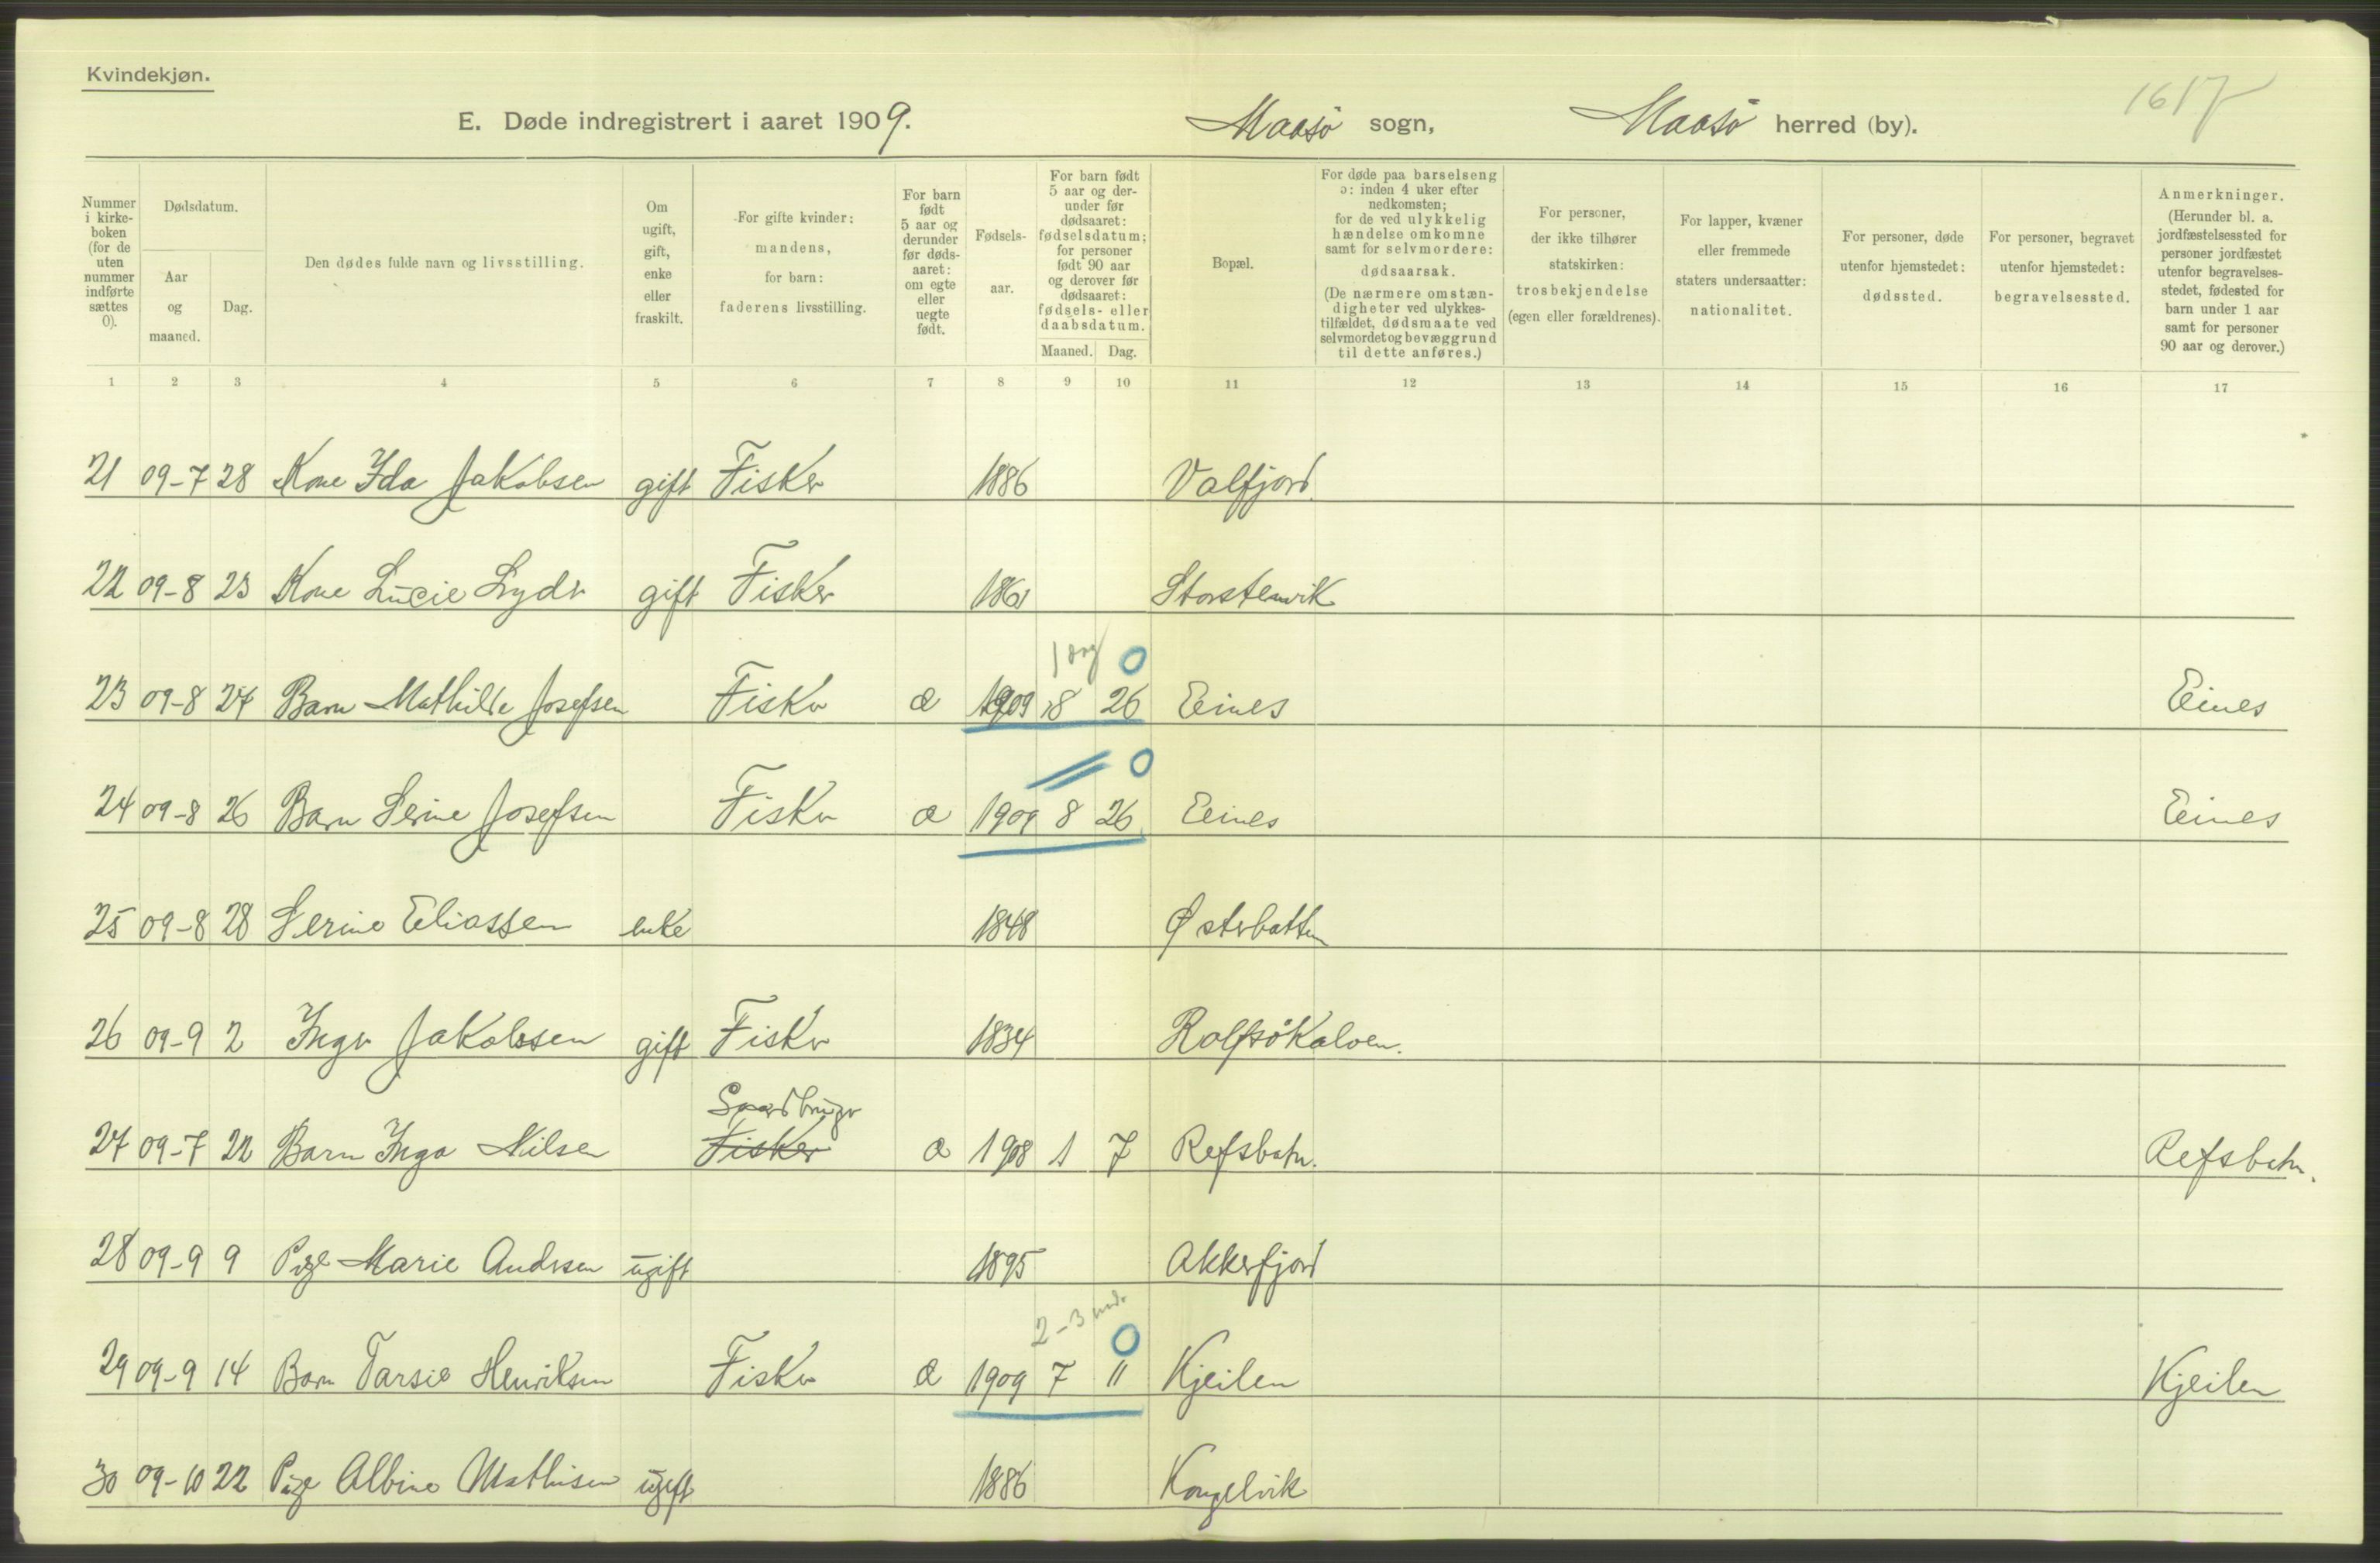 Kvindekjøn.
1617
E. Døde indregistrert i aaret 1909. Maasø sogn, Maasø herred (by).
Nummer i kirke- boken (for de uten nummer indførte sættes 0).
Dødsdatum.
Aar og maaned.
Dag.
Den dødes fulde navn og livsstilling.
Om ugift, gift, enke eller fraskilt.
For gifte kvinder: mandens, for barn: faderens livsstilling.
For barn født 5 aar og derunder før døds- aaret: om egte eller uegte født.
Fødsels- aar.
For barn født 5 aar og der- under før dødsaaret: fødselsdatum; for personer født 90 aar og derover før dødsaaret: fødsels- eller daabsdatum.
Maaned. Dag.
Bopæl.
For døde paa barselseng ɔ: inden 4 uker efter nedkomsten; for de ved ulykkelig hændelse omkomne samt for selvmordere: dødsaarsak. (De nærmere omstæn- digheter ved ulykkes- tilfældet, dødsmaate ved selvmordet og bevæggrund til dette anføres.)
For personer, der ikke tilhører statskirken: trosbekjendelse (egen eller forældrenes).
For lapper, kvæner eller fremmede staters undersaatter: nationalitet.
For personer, døde utenfor hjemstedet: dødssted.
For personer, begravet utenfor hjemstedet: begravelsessted.
Anmerkninger. (Herunder bl. a. jordfæstelsessted for personer jordfæstet utenfor begravelses- stedet, fødested for barn under 1 aar samt for personer 90 aar og derover.)
1 2 3 4 5 6 7 8 9 10 11 12 13 14 15 16 17
21 09-7 28 Kone Ida Jakobsen gift Fisker 1886 Valfjord
22 09-8 23 Kone Lucie Lyder gift Fisker 1861 Storstenvik
1 dag 0
23 09-8 27 Barn Mathilde Josefsen Fisker æ 1909 8 26 Eines Eines
0
24 09-8 26 Barn Serine Josefsen Fisker æ 1909 8 26 Eines Eines
25 09-8 28 Serine Eliassen enke 1848 Østerbotten
26 09-9 2 Inger Jakobsen gift Fisker 1834 Rolfsøkalven.
Gaardbruger
27 09-7 22 Barn Inga Nilsen Fisker æ 1908 1 7 Refsbotn. Refsbotn.
28 09-9 9 Pige Marie Andersen ugift 1895 Akkerfjord
2-3 md. 0
29 09-9 14 Barn Tarsie Henriksen Fisker æ 1909 7 11 Kjeilen Kjeilen
30 09-10 22 Pige Albine Mathisen ugift 1886 Kongelvik